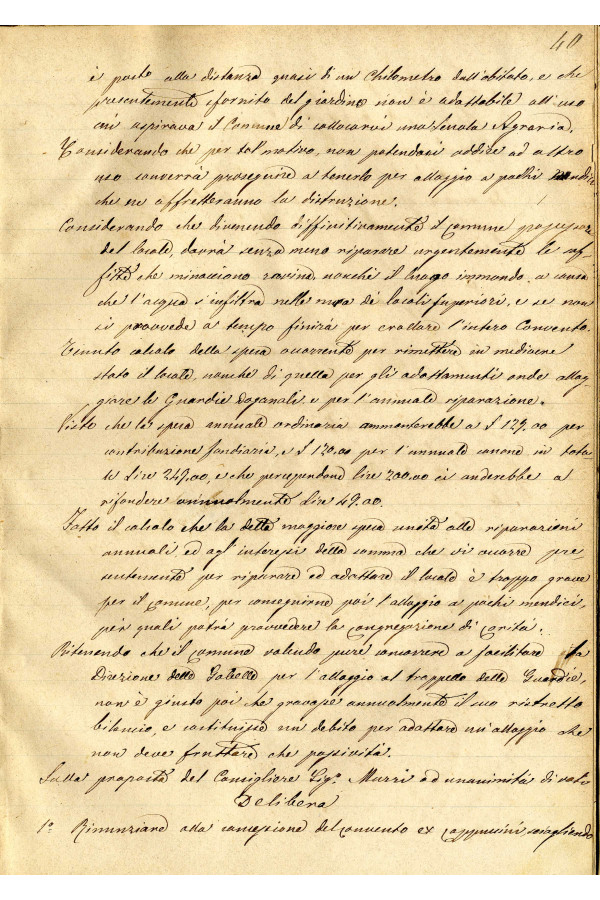 40
è posto alla distanza quasi di un Chilometro dall'abitato, e che
presentemente sfornito del giardino non è adattabile all'uso
cui aspirava il Comune di collocarvi una Scuola Agraria.
Considerando che per tal motivo, non potendosi addire ad altro
uso converrà proseguire a tenerlo per alloggio a pochi mendici
che ne affretteranno la distruzione.
Considerando che divenendo diffinitivamente il Comune possessore
del locale, dovrà senza meno riparare urgentemente le sof-
fitte che minacciono rovina nonchè il luogo immondo a causa
che l'acqua s'infiltra nelle mura dei locali superiori, e se non
si provvede a tempo finirà per crollare l'intero Convento.
Tenuto calcolo della spesa occorrente per rimettere in mediocre
stato il locale, nonche di quella per gli adattamenti onde allog-
giare le Guardie Doganali, e per l'annuale riparazione.
Visto che la spesa annuale ordinaria ammonterebbe a £ 129.00 per
contribuzione fondiaria, e £ 120.00 per l'annuale canone in tota
le lire 249.00, e che percependone lire 200.00 ci anderebbe a
rifondere annualmente Lire 49.00.
Fatto il calcolo che la detta maggiore spesa unita alle riparazioni
annuali ed agl'interessi della somma che vi occorre pre-
sentemente per riparare ed adattare il locale è troppo grave
per il Comune, per conseguirne poi l'alloggio a pochi mendici,
pei quali potrà provvedere la Congregazione di Carità.
Ritenendo che il Comune volendo pure concorrere a facilitare la
Direzione delle Gabelle per l'alloggio al drappello delle Guardie,
non è giusto poi che gravasse annualmente il suo ristretto
bilancio, e costituisse un debito per adattare un'alloggio che
non deve fruttare che passività.
Sulla proposta del Consigliere Sig. Muzzi ad unanimità di voti
Delibera
1º Rinunziare alla concessione del convento ex cappuccini, sciogliendo